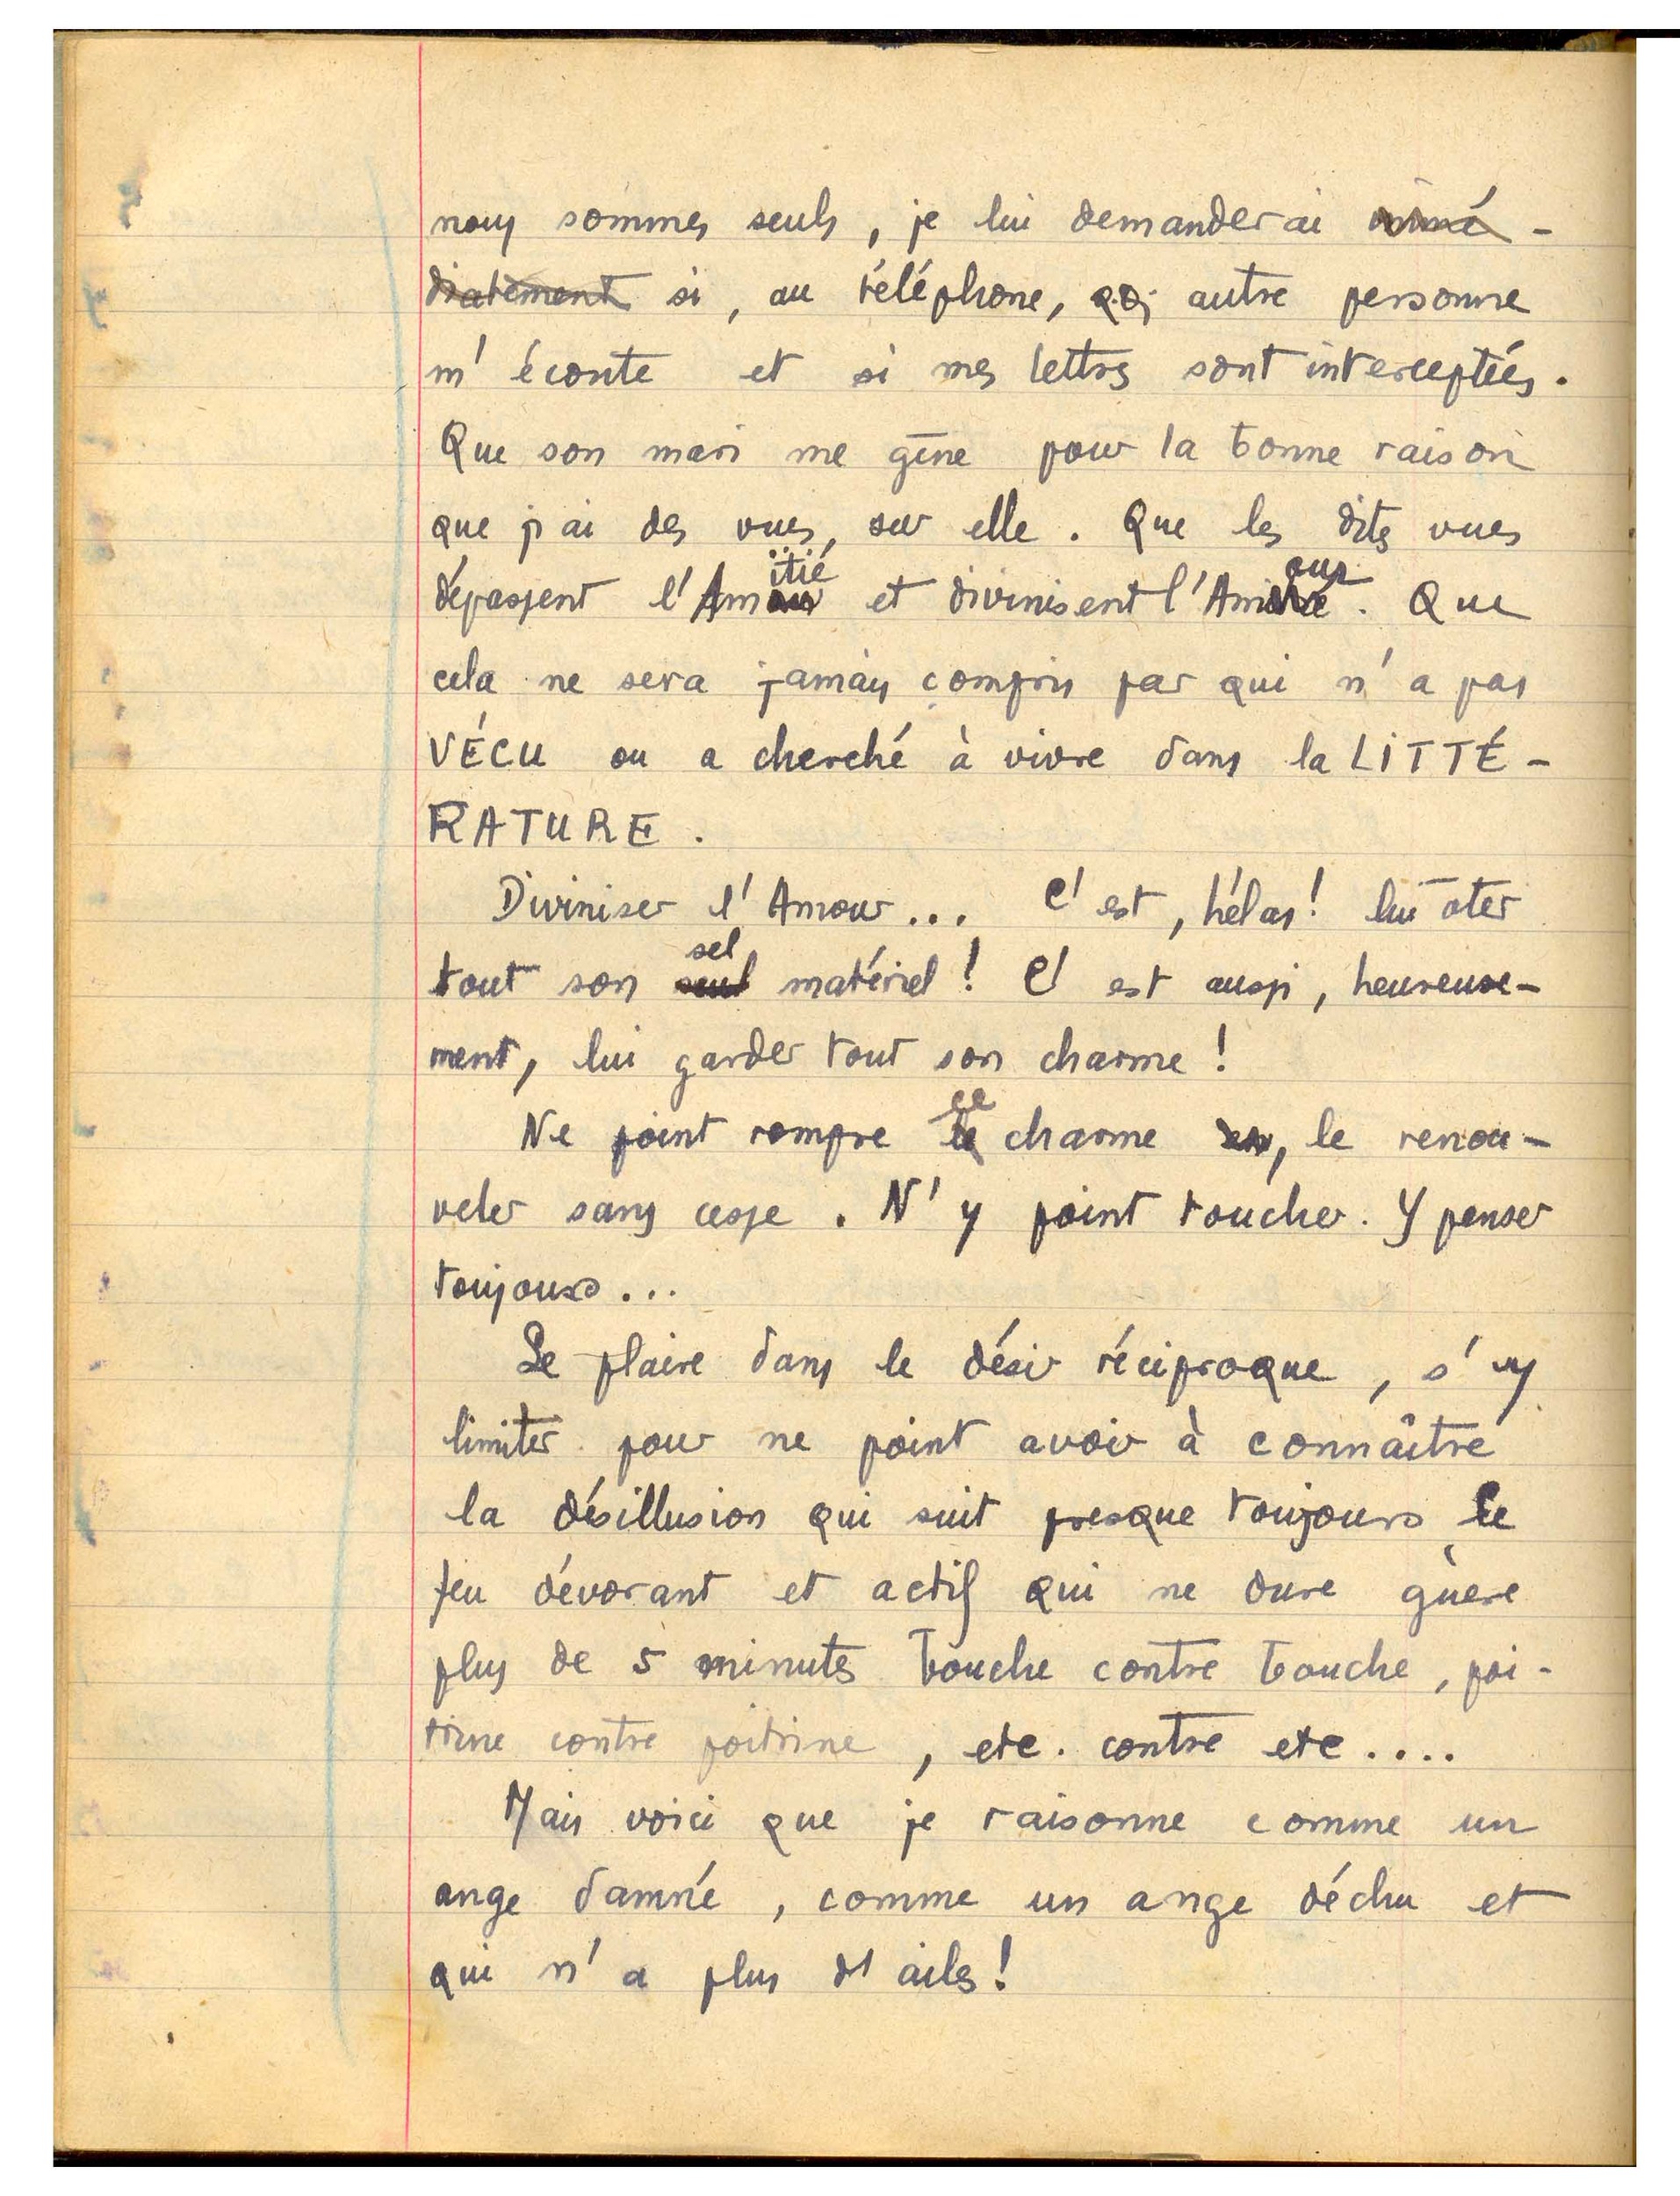 nous sommes seuls, je lui demanderai immé-
diatement si, au téléphone, qq autre personne
m'écoute et si mes lettres sont interceptées.
Que son mari me gêne pour la bonne raison
que j'ai des vues sur elle. Que les dites vues
dépassent l'Amitié et divinisent l'Amour. Que
cela ne sera jamais compris par qui n'a pas
VÉCU ou a cherché à vivre dans la LITTÉ-
RATURE.
Diviniser l'Amour... C'est, hélas! lui ôter
tout son sel matériel! C'est aussi, heureuse-
ment, lui garder tout son charme!
Ne point rompre ce charme, le renou-
veler sans cesse. N'y point toucher. Y penser
toujours...
Se plaire dans le désir réciproque, s'y
limiter pour ne point avoir à connaître
la désillusion qui suit presque toujours le
feu dévorant et actif qui ne dure guère
plus de 5 minutes bouche contre bouche, poi-
trine contre poitrine, etc. contre etc....
Mais voici que je raisonne comme un
ange damné, comme un ange déchu et
qui n'a plus d'ailes!